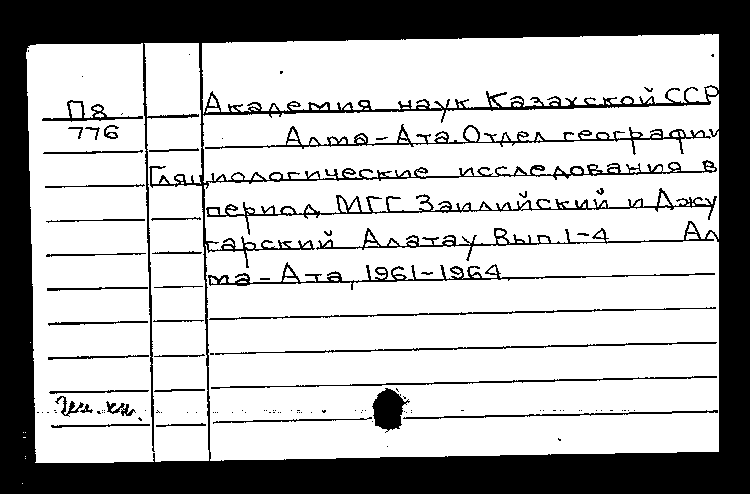 П8
776
Академия наук Казахской ССР
Алма-Ата. Отдел географии
Гляциологические исследования в
период МГГ. Заилийский и Джу
гарский Алатау. Вып. 1-4 Ал
ма-Ата, 1961-1964.